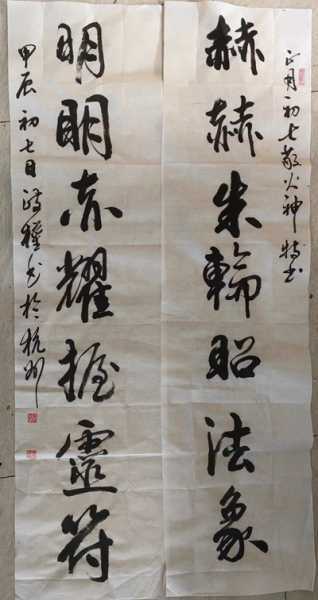 正月初七敬火神特书
赫赫朱輪昭法象
明明赤耀握靈符
甲辰初七日书於杭州